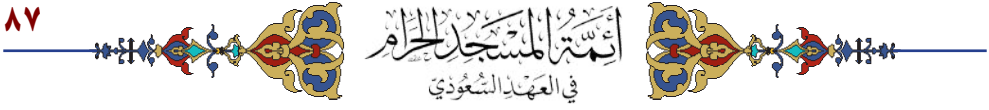 ٨٧
أَئِمَّةُ المَسْجِدِ الحَرَامِ
فِي العَهْدِ السُّعُودِيِّ